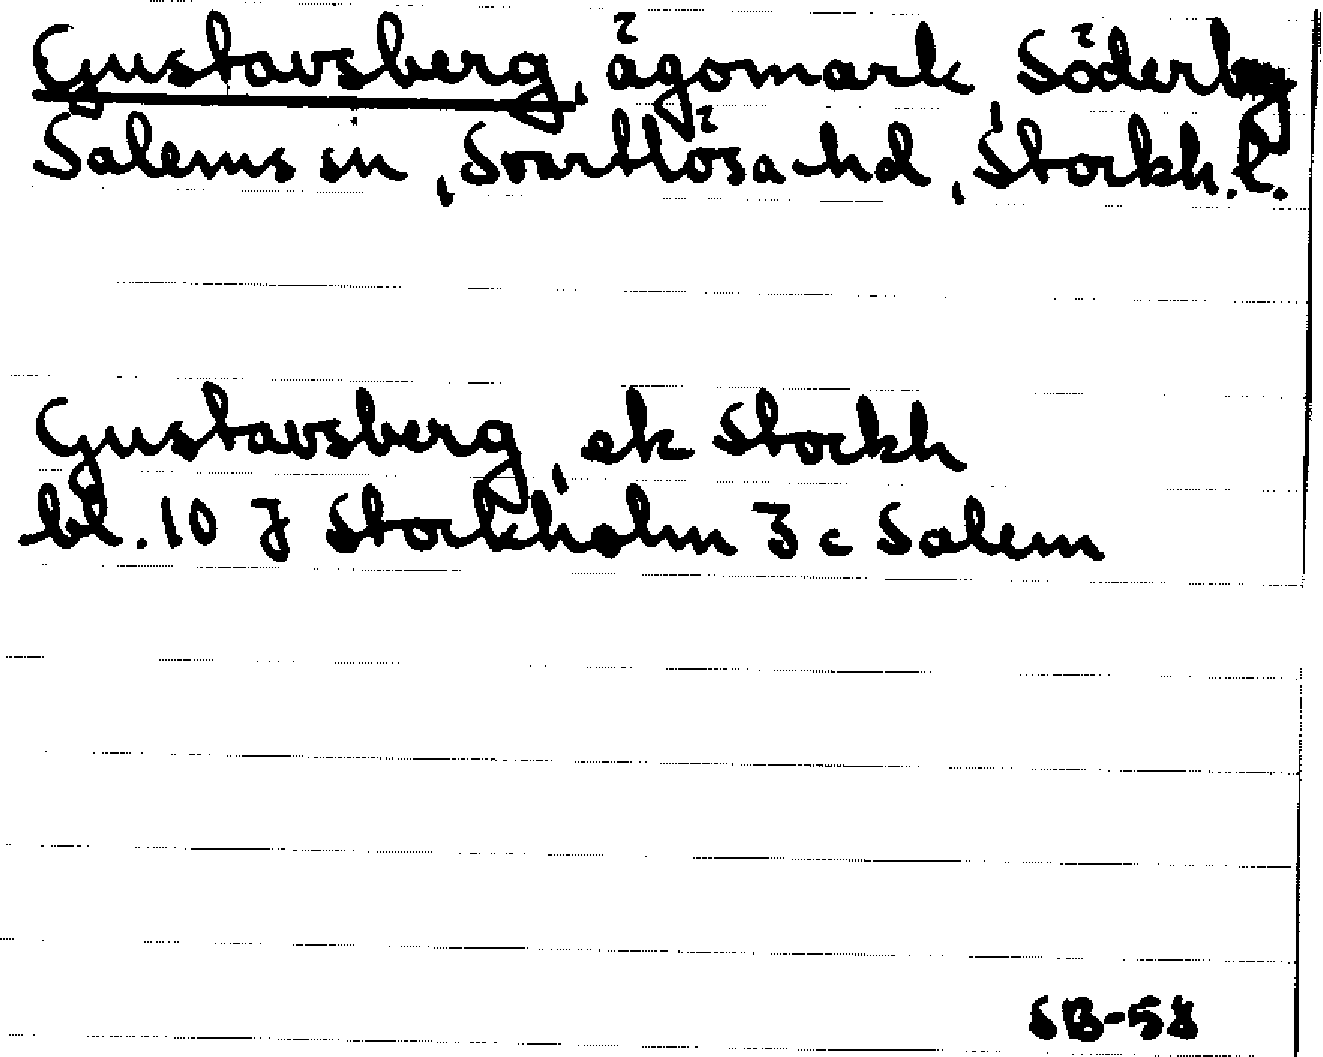 Gustavsberg, ägomark, Söderby
Salems sn, Svartlösa hd, Stockh. l.
Gustavsberg, ek Stockh
bl. 10 J Stockholm 3 c Salem
SB-58